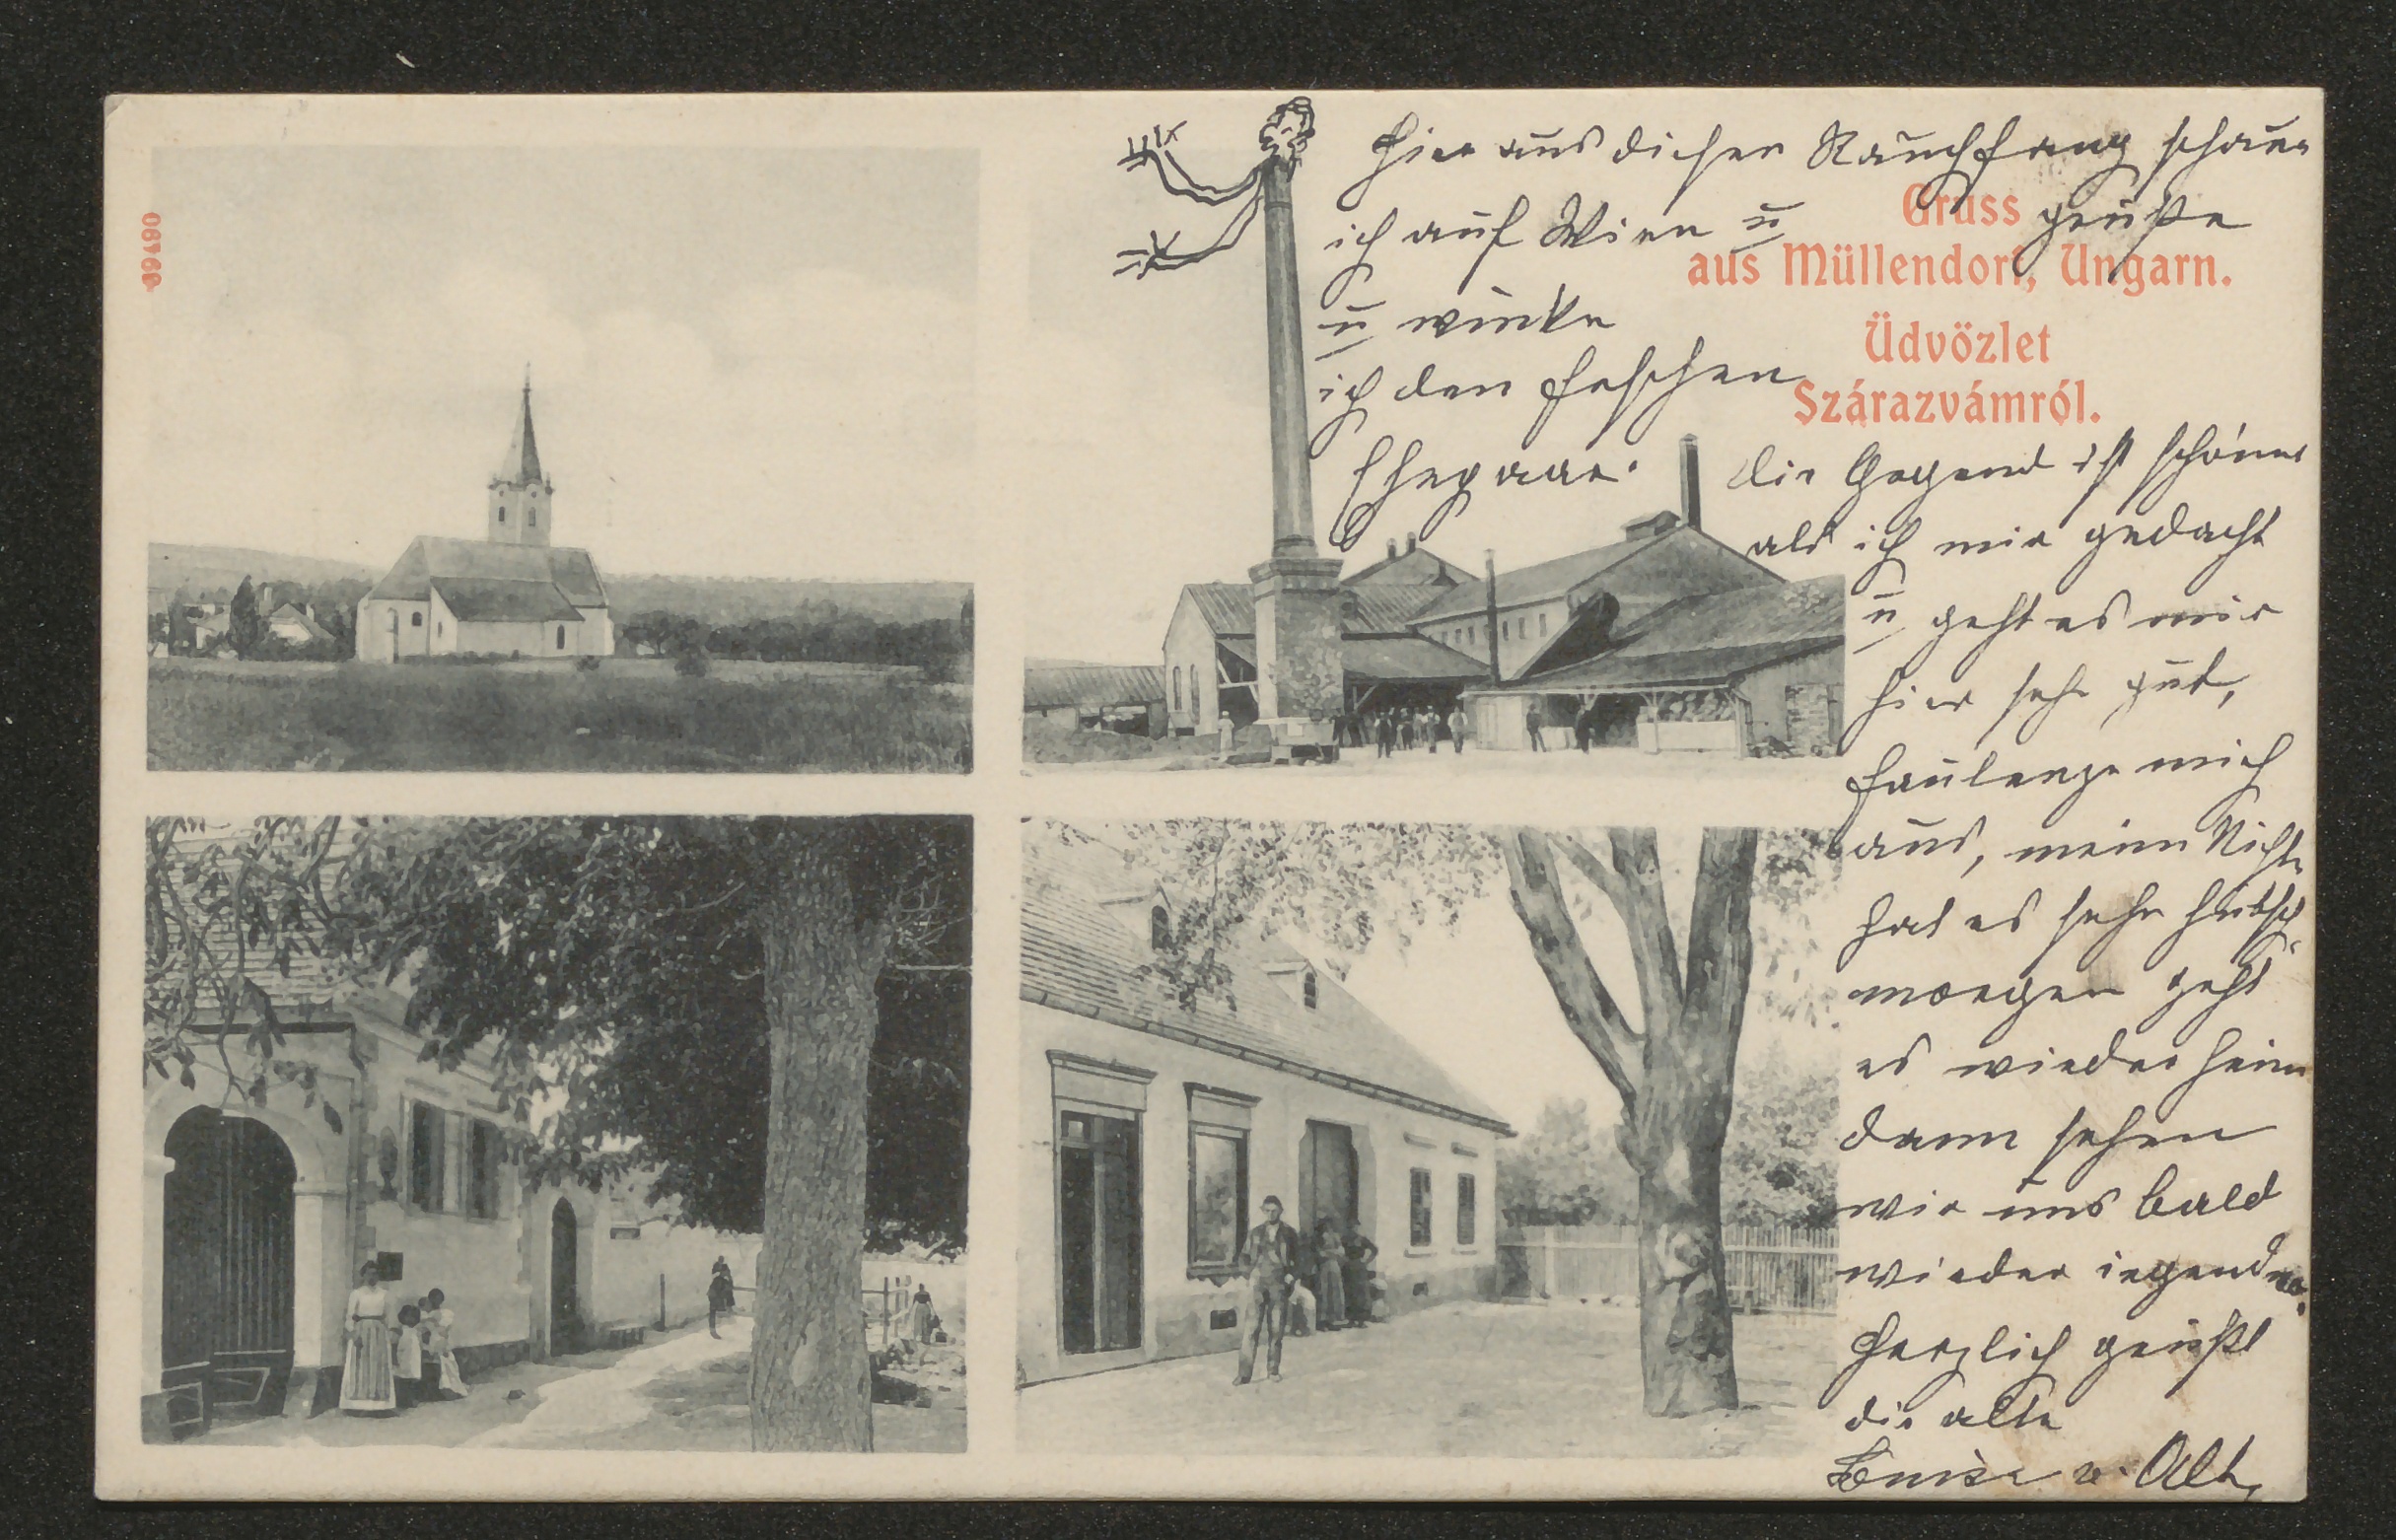 Hier aus diesen Rauchfang schaue
ich auf Wien u grüße
u winke
ich den feschen
Ehepaar.
Gruss
aus Müllendorf, Ungarn.
Üdvözlet
Szárazvámról.
die Gegend ist schöner
als ich mir gedacht
u geht es mir
hier sehr gut,
faulenze mich
aus, meine Nichte
hat es sehr hübsch.
morgen geht
es wieder heim
dann sehen
wir uns bald
wieder irgendwo.
Herzlich grüßt
die alte
Louise v. Alt,